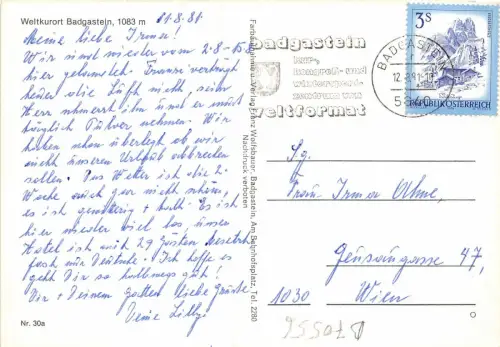 Weltkurort Badgastein, 1083 m
11.8.81
Meine liebe Irma!
Wir sind wieder vom 2.8-15.8
hier gelandet. Franzi verträgt
leider die Luft nicht, sein
Herz und er muß
täglich Pulver nehmen. Wir
haben schon überlegt ob wir
nicht unseren Urlaub abbrechen
sollen. Das Wetter ist die 2.
Woche auch gar nicht schön,
es ist + kalt. Es ist
hier wieder viel los, unser
Hotel ist mit 29 Gästen besetzt
fast nur Deutsche. Ich hoffe es
geht Dir so halbwegs gut!
Dir + Deinem Gatten liebe Grüsse
Deine Lilly
Nr. 30a
Farbaufnahme u. Verlag Franz Wolfsbauer, Badgastein, Am Bahnhofsplatz, Tel. 2280
Nachdruck verboten
badgastein
kur-
kongreß- und
wintersport-
zentrum von
weltformat
BADGASTEIN
3S
REPUBLIK ÖSTERREICH
Sg.
Frau Irma Ohme,
Geusaugasse 47,
1030 Wien